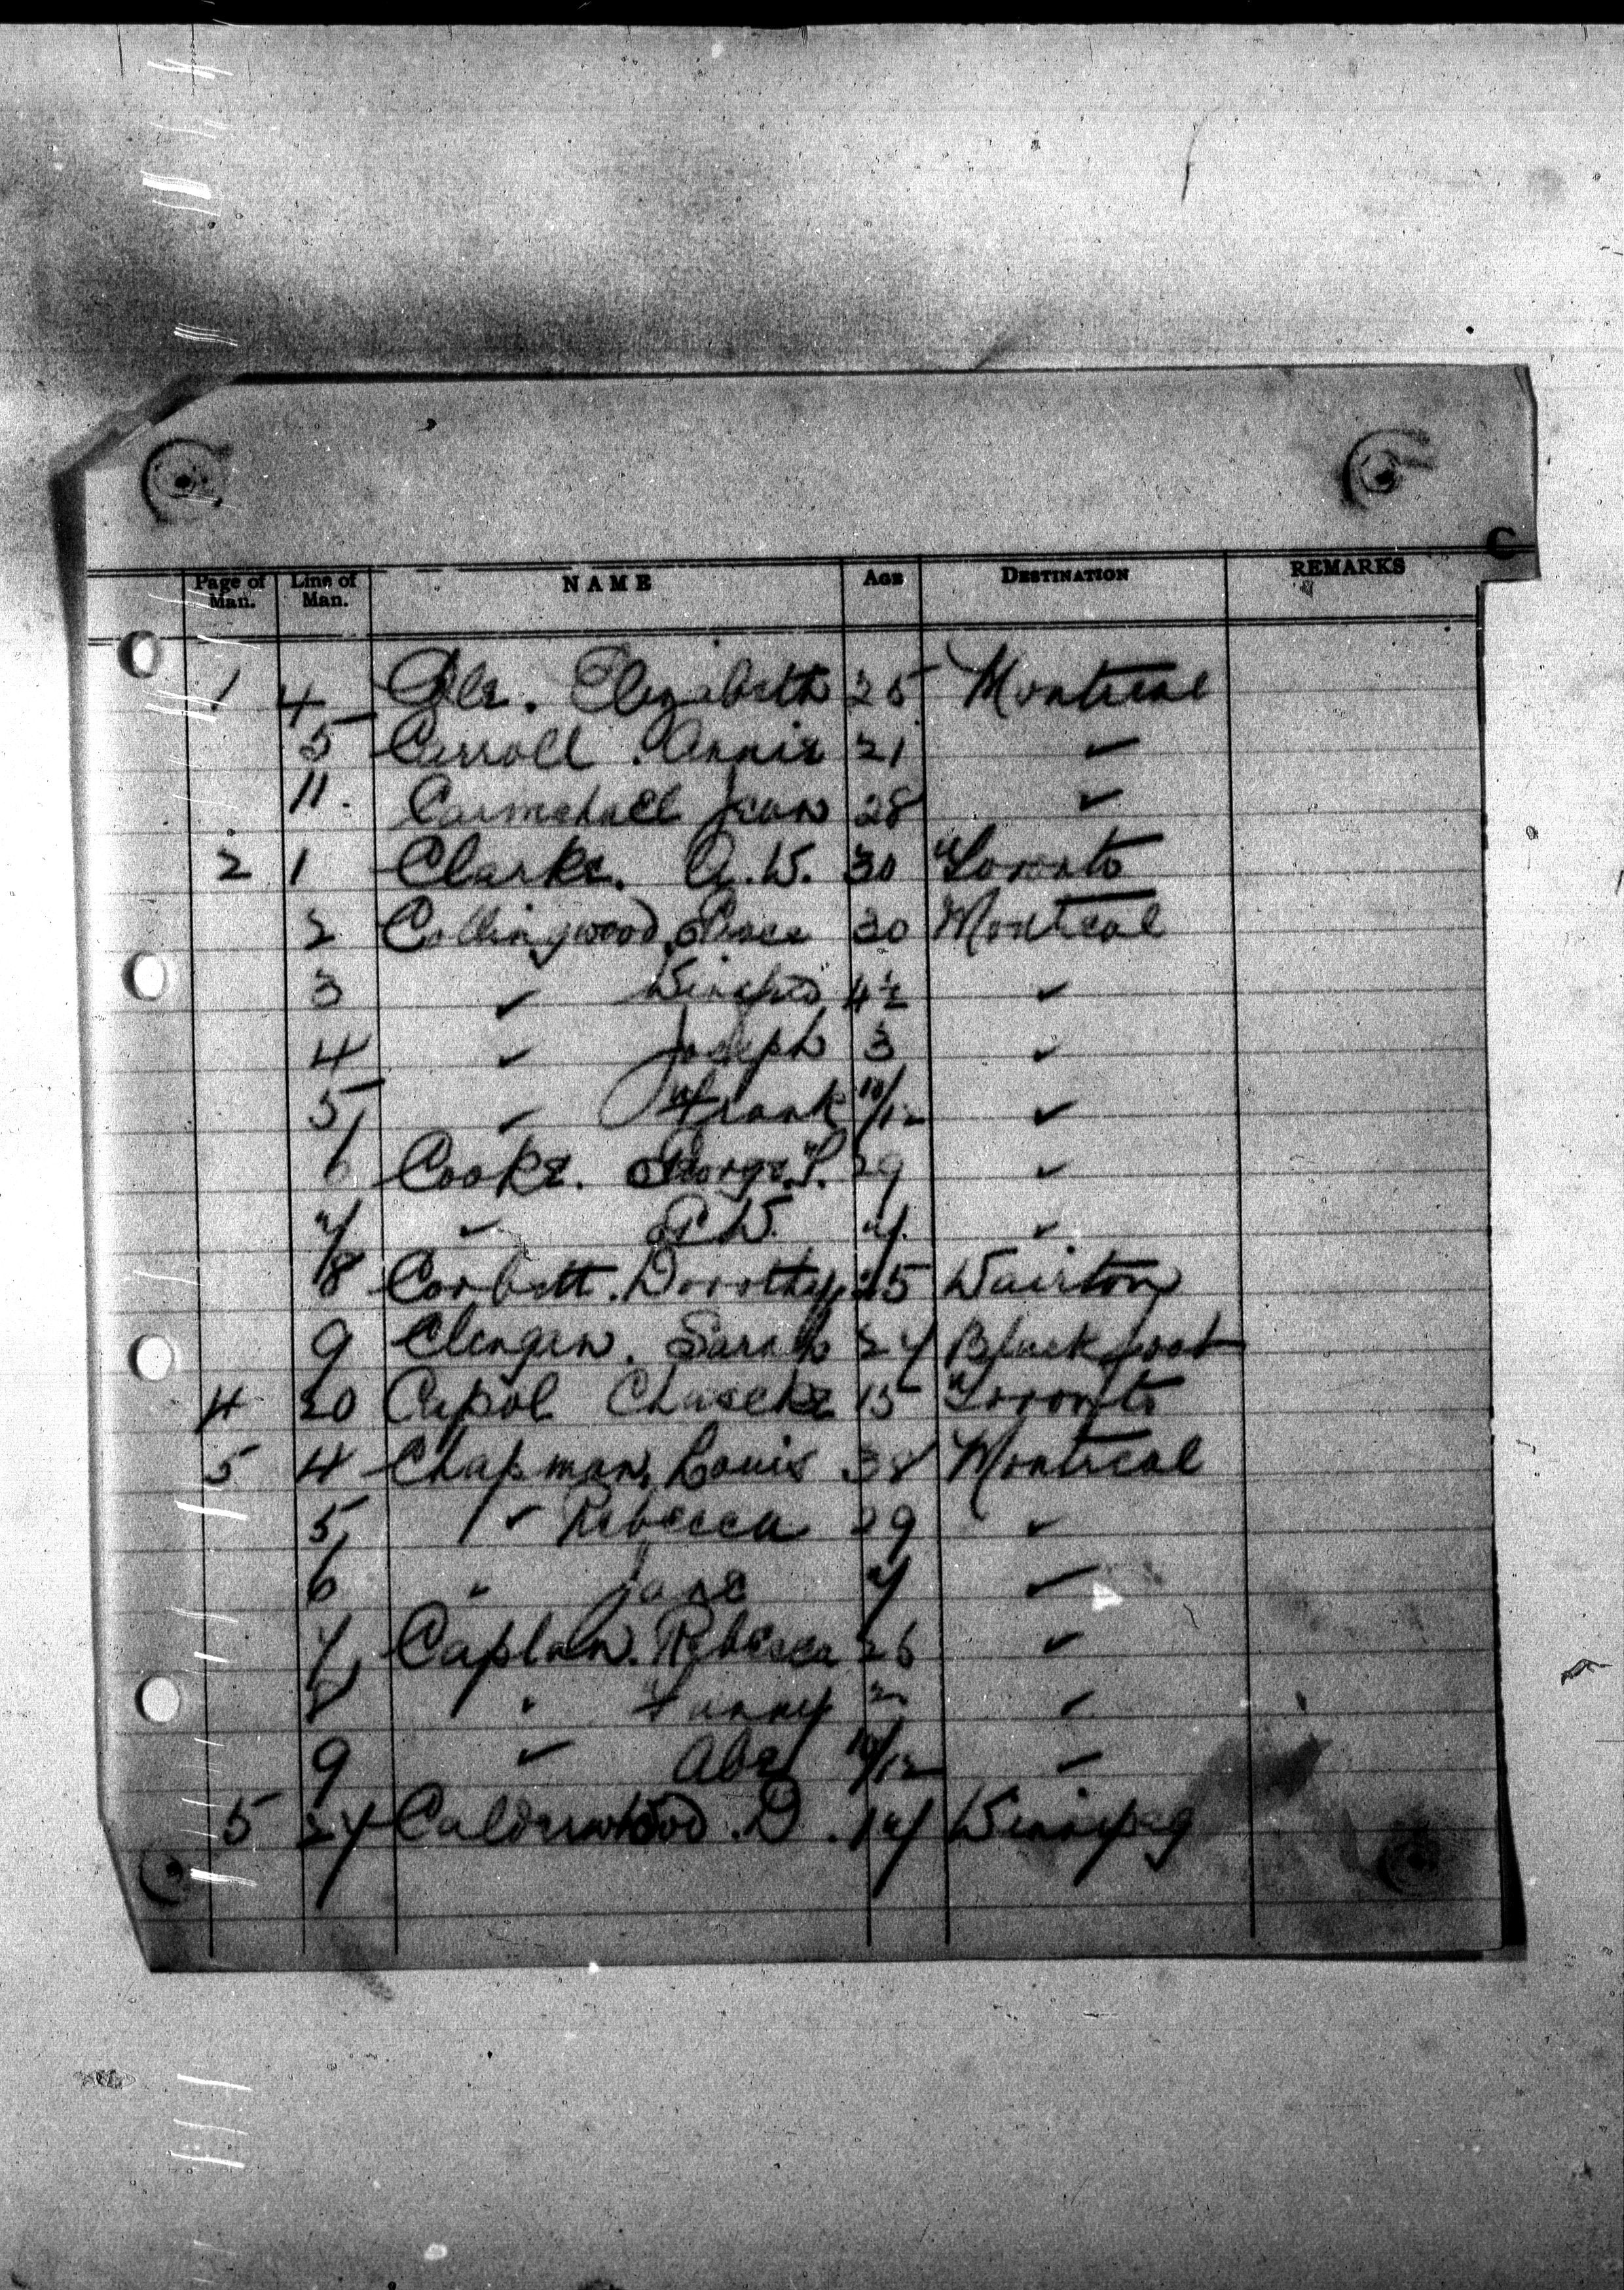 C
Page of Man. Line of Man. NAME AGE DESTINATION REMARKS
1 4 Elizabeth 25 Montreal
5 Carroll. Annie 21 ✓
11. Carmichael Jean 28 ✓
2 1 Clarke. A.W. 30 Toronto
2 Collingwood, Grace 30 Montreal
3 ✓ Winifred 4½ ✓
4 ✓ Joseph 3 ✓
5 ✓ Frank 10/12 ✓
6 Cooke. George T. 29 ✓
7 ✓ W. 7. ✓
8 Corbett. Dorothy 25 Wairton
9 Clengen. Sarah 27 Blackfoot
4 20 Capol 15 Toronto
5 4 Chapman, Louis 38 Montreal
5 ✓ Rebecca 29 ✓
6 " Jane 7 ✓
7 Caplan. Rebecca 26 ✓
8 " Fanny 2 ✓
9 ✓ Abe 10/12 ✓
5 27 Calderwood. D. 17 Winnipeg